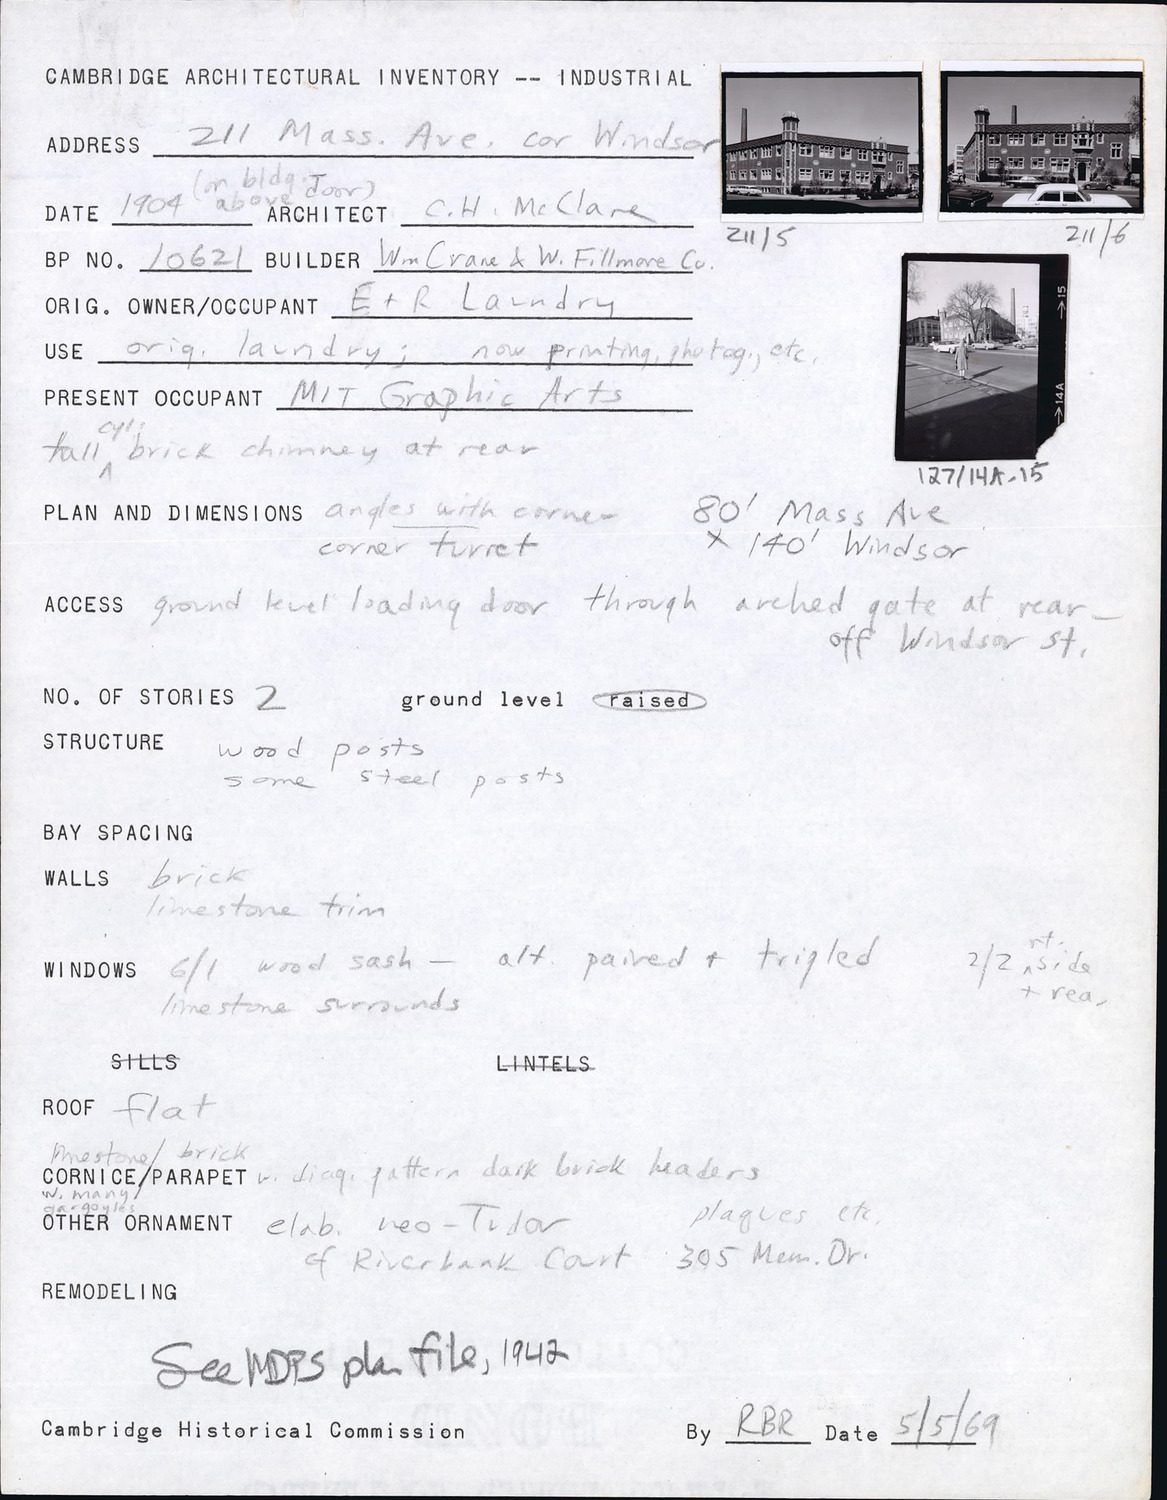 CAMBRIDGE ARCHITECTURAL INVENTORY -- INDUSTRIAL
ADDRESS 211 Mass. Ave. cor Windsor
(on bldg.
above door)
DATE 1904 ARCHITECT C.H. McClare
211/5
211/6
BP NO. 10621 BUILDER Wm Crane & W. Fillmore Co.
ORIG. OWNER/OCCUPANT E + R Laundry
→15
USE orig. laundry; now printing, photog., etc.
PRESENT OCCUPANT MIT Graphic Arts
→14A
cyl.
tall ^ brick chimney at rear
127/14A-15
PLAN AND DIMENSIONS angles with corner 80' Mass Ave
corner turret x 140' Windsor
ACCESS ground level loading door through arched gate at rear—
off Windsor St.
NO. OF STORIES 2 ground level raised
STRUCTURE wood posts
some steel posts
BAY SPACING
WALLS brick
limestone trim
WINDOWS 6/1 wood sash — alt. paired + tripled 2/2 ^ rt. side
limestone surrounds + rear
SILLS LINTELS
ROOF flat
limestone/ brick
CORNICE/PARAPET w. diag. pattern dark brick headers
w. many
gargoyles
OTHER ORNAMENT elab. neo-Tudor plaques etc.
cf Riverbank Court 305 Mem. Dr.
REMODELING
See MDPS plan file, 1942
Cambridge Historical Commission By RBR Date 5/5/69